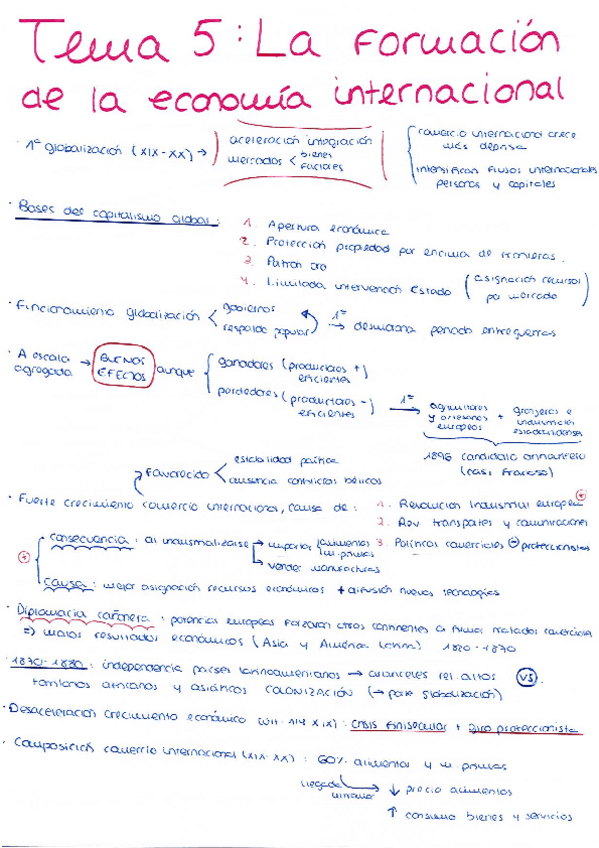 Tema 5: La Formación
de la economía internacional
· 1ª globalización (XIX-XX) → aceleración integración mercados < bienes factores
comercio internacional crece más deprisa
intensifican flujos internacionales personas y capitales
· Bases del capitalismo global:
1. Apertura económica
2. Protección propiedad por encima de fronteras.
3. Patrón oro
4. Limitada intervención Estado (asignación recursos por mercado)
· Funcionamiento globalización < gobiernos respaldo popular → 1ª desmorona periodo entreguerras
· A escala agregada → BUENOS EFECTOS aunque
ganadores (productores + eficientes)
perdedores (productores - eficientes) → 1ª agricultores y artesanos europeos + granjeros e industriales estadounidenses
1896 candidato
(casi fracaso)
favorecido < estabilidad política
ausencia conflictos bélicos
· Fuerte crecimiento comercio internacional, causa de: 1. Revolución Industrial europea *
2. Rev transportes y comunicaciones
3. Políticas comerciales ⊖ proteccionistas
* consecuencia: al industrializarse → importar alimentos m. primas
→ vender manufacturas
causa: mejor asignación recursos económicos + difusión nuevas tecnologías
· Diplomacia cañonera: potencias europeas forzaron otros continentes a firmar tratados comerciales
=) malos resultados económicos (Asia y América Latina) 1820-1870
· 1870-1880: independencia países latinoamericanos → aranceles rel. altos VS.
territorios africanos y asiáticos COLONIZACIÓN (→ parte globalización)
· Desaceleración crecimiento económico (últ. 1/4 XIX): Crisis finisecular + Giro proteccionista
· Composición comercio internacional (XIX-XX): 60% alimentos y m. primas
llegada ultramar → ↓ precio alimentos
↑ consumo bienes y servicios